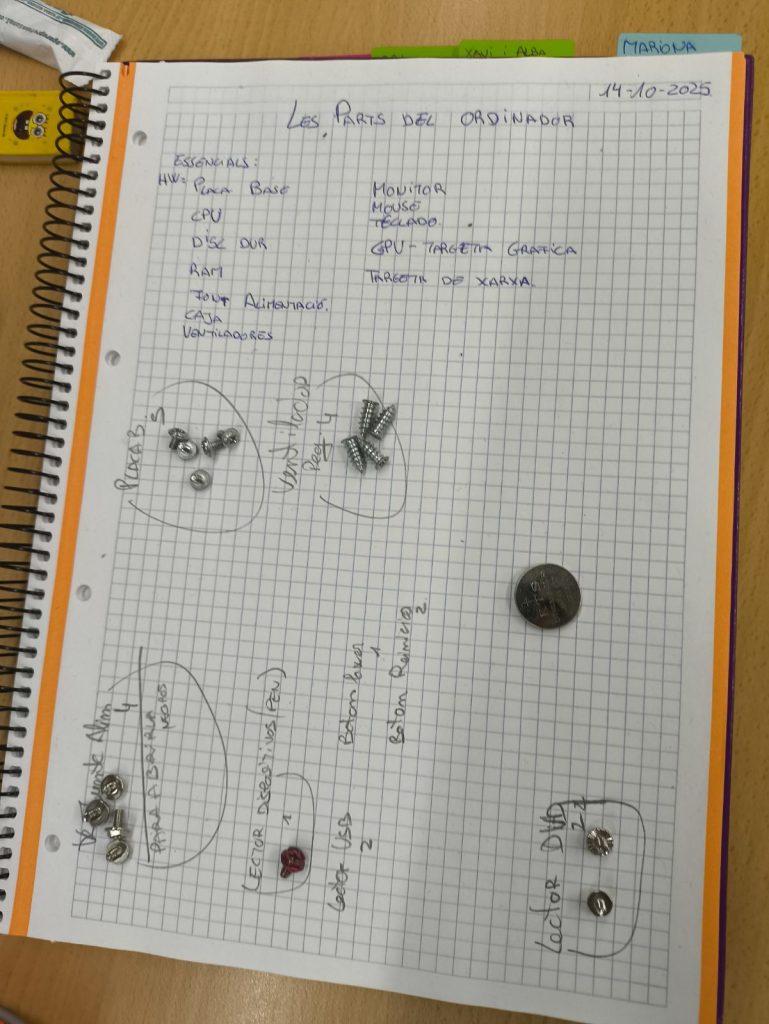 XAVI i ALBA
MARIONA
14-10-2025
LES PARTS DEL ORDINADOR
ESSENCIALS:
HW: PLACA BASE
CPU
DISC DUR
RAM
FONT ALIMENTACIÓ.
CAJA
VENTILADORES
MONITOR
MOUSE
TECLADO.
GPU - TARGETA GRAFICA
TARGETA DE XARXA.
PLACA B.
5
Ventilador
Peq 4
Fuente Alim
4
PARA ABRIRLA
LECTOR DISPOSITIVOS (PEN)
1
Lector USB
2
Boton
1
Boton Reinicio
2
Lector DVD